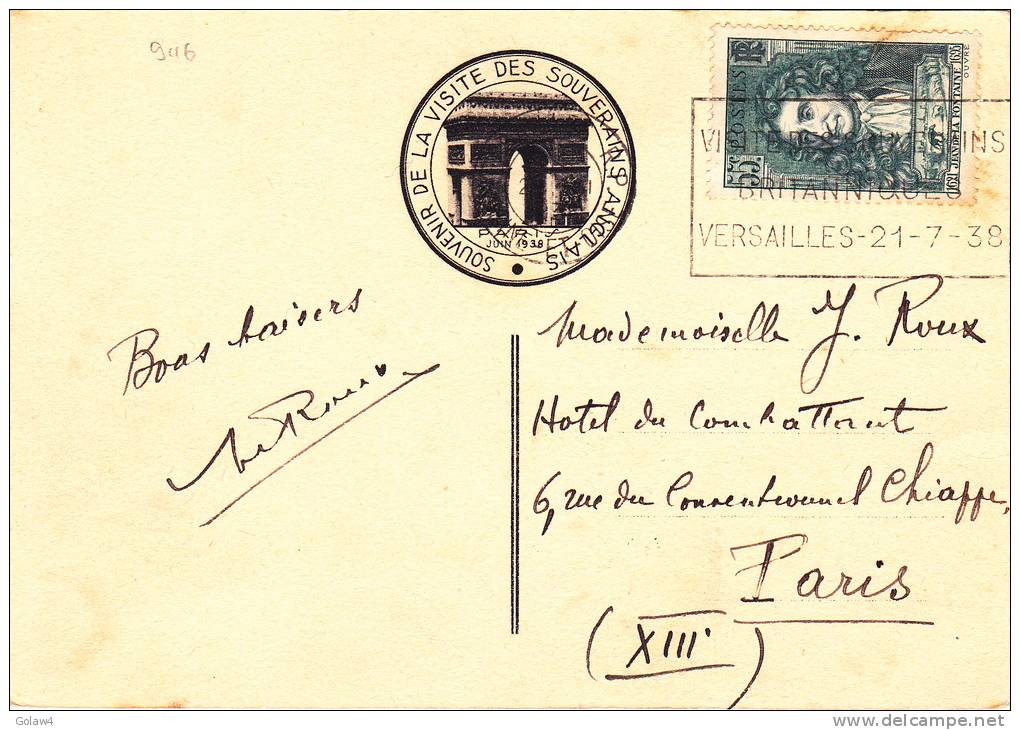 946
SOUVENIR DE LA VISITE DES SOUVERAINS ANGLAIS
PARIS
JUIN 1938
RF
POSTES
55c
1621 JEAN DE LA FONTAINE 1695
OUVRÉ
VISITE DES SOUVERAINS
BRITANNIQUES
VERSAILLES-21-7-38
Bons baisers
Mademoiselle J. Roux
Hotel du Combattant
6, rue du Conventionnel Chiappe,
Paris
(XIIIe)
Golaw4
www.delcampe.net